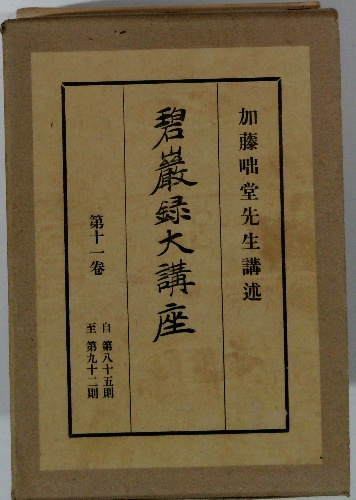 加藤咄堂先生講述
碧巖録大講座
第十一卷
自 第八十五則
至 第九十二則